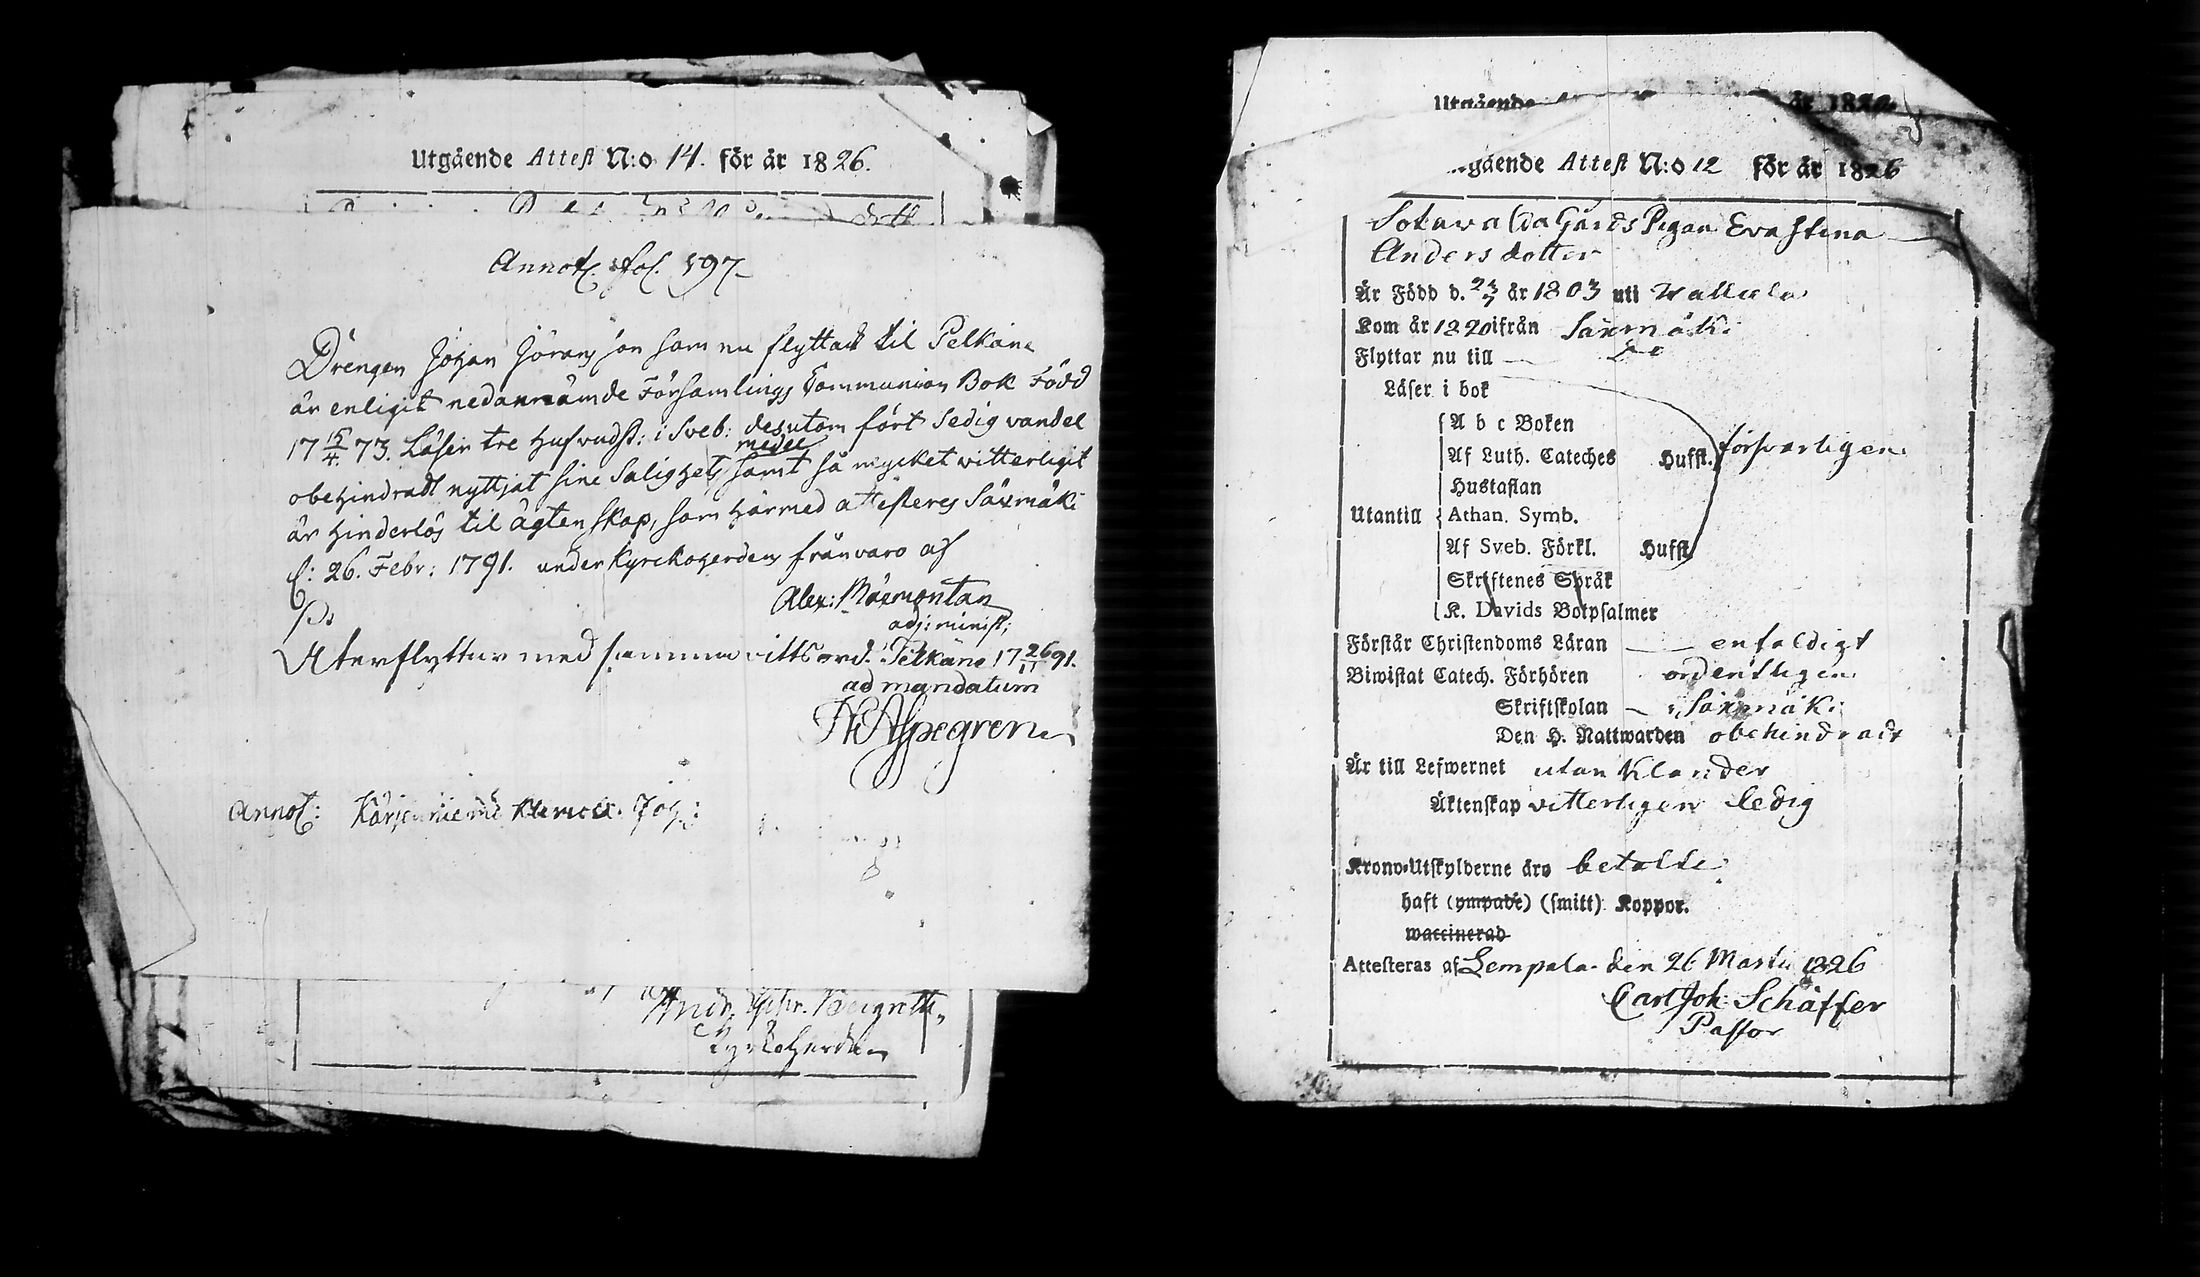 Utgående Attest N:o 14. för år 1826.
Annot. fol. 597
Drengen Johan Jöransson som nu flyttar til Pelkäne
är enligit nedannämde Församlings Communion Bok Född
17 15/4 73. Läser tre Hufvudst: i Sveb: desutom fört sedig vandel
obehindradt nyttjat sine Salighets medel samt så mycket witterligit
är hinderlös til ägtenskap, som härmed attesteres Säxmäki
d: 26. Febr: 1791. under Kyrckoherdens frånvaro af
Alex: Maxmontan
adj: minist:
Ps
Återflyttar med samma vittsord. Pelkäne 17 26/11 91.
ad mandatum
Alpegren
Annot: Joh:
Kyrkoherde
Utgående för år 1826
Utgående Attest N:o 12 för år 1826
Gårds Pigan Eva Stina
Anders dotter
Är Född d. år 1803 uti
Kom år 1820 ifrån Säxmäki
Flyttar nu till do
Läser i bok
A b c Boken
Af Luth. Cateches Hufst. försvarligen
Hustaflan
Utantill Athan. Symb.
Af Sveb. Förkl. Hufst
Skriftenes Språk
K. Davids Botpsalmer
Förstår Christendoms Läran enfaldigt
Biwistat Catech. Förhören ordentligen
Skriftskolan i Säxmäki
Den H. Nattwarden obehindradt
Är till Lefwernet utan klander
Äktenskap vitterligen ledig
Krono-Utskylderne äro betalde
haft (ympade) (smitt) Koppor.
waccinerad
Attesteras af Lempala den 26 Martii 1826
Carl Joh. Schäffer
Pastor